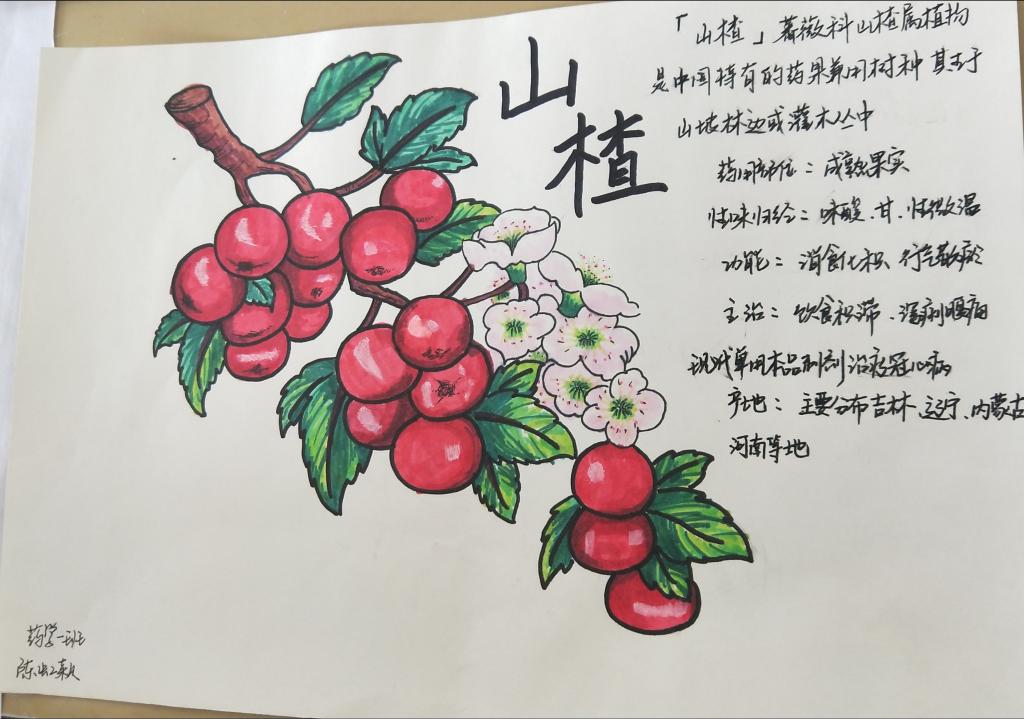 山楂
「山楂」蔷薇科山楂属植物
是中国特有的药果兼用树种
山坡林边或灌木丛中
药用部位：成熟果实
性味归经：味酸、甘、性微温
功能：消食化积 行气散瘀
主治：饮食积滞、泻痢腹痛
现代单用本品制剂治疗冠心病
产地：主要分布吉林、辽宁、内蒙古
河南等地
药学一班
陈